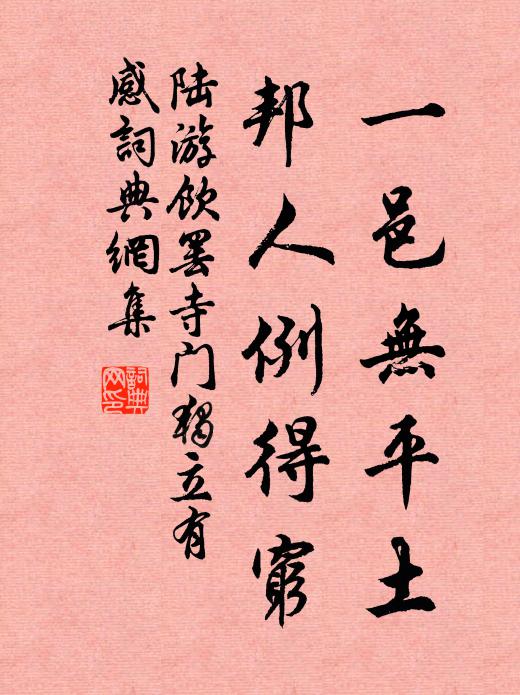 一邑無平土
邦人例得窮
陆游饮罢寺门独立有
感詞典網集
詞典
网印